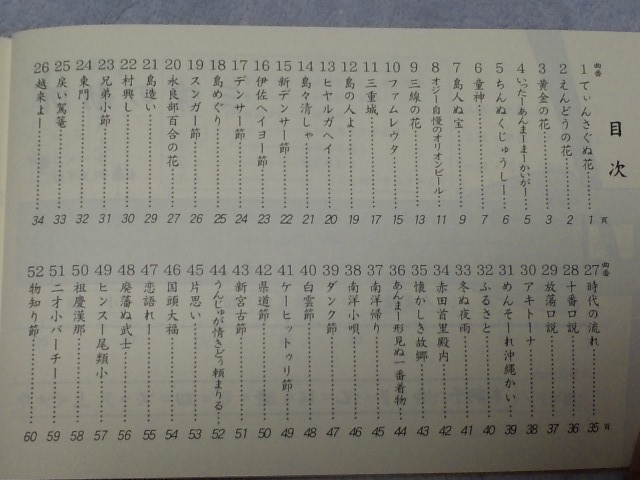 目次
曲番
1 てぃんさぐぬ花 1
2 えんどうの花 2
3 黄金の花 3
4 いったーあんまーまーかいが 5
5 ちんぬくじゅうしー 6
6 童神 7
7 島人ぬ宝 9
8 オジー自慢のオリオンビール 11
9 三線の花 13
10 ファムレウタ 15
11 三重城 17
12 島の人よ 19
13 ヒヤルガヘイ 20
14 島々清しゃ 21
15 新デンサー節 22
16 伊佐ヘイヨー節 23
17 デンサー節 24
18 島めぐり 25
19 スンガー節 26
20 永良部百合の花 27
21 島造い 29
22 村興し 30
23 兄弟小節 31
24 東門 32
25 戻い駕篭 33
26 越来よー 34
頁
曲番
27 時代の流れ 35
28 十番口説 36
29 放蕩口説 37
30 アキトーナ 38
31 めんそーれ沖縄かい 39
32 ふるさと 40
33 冬ぬ夜雨 41
34 赤田首里殿内 42
35 懐かしき故郷 43
36 あんまー形見ぬ一番着物 44
37 南洋帰り 45
38 南洋小唄 46
39 ダンク節 47
40 白雲節 48
41 ケーヒットゥリ節 49
42 県道節 50
43 新宮古節 51
44 うんじゅが情きどぅ頼まりる 52
45 片思い 53
46 国頭大福 54
47 恋語れー 55
48 廃藩ぬ武士 56
49 ヒンスー尾類小 57
50 祖慶漢那 58
51 二才小バーチー 59
52 物知り節 60
頁